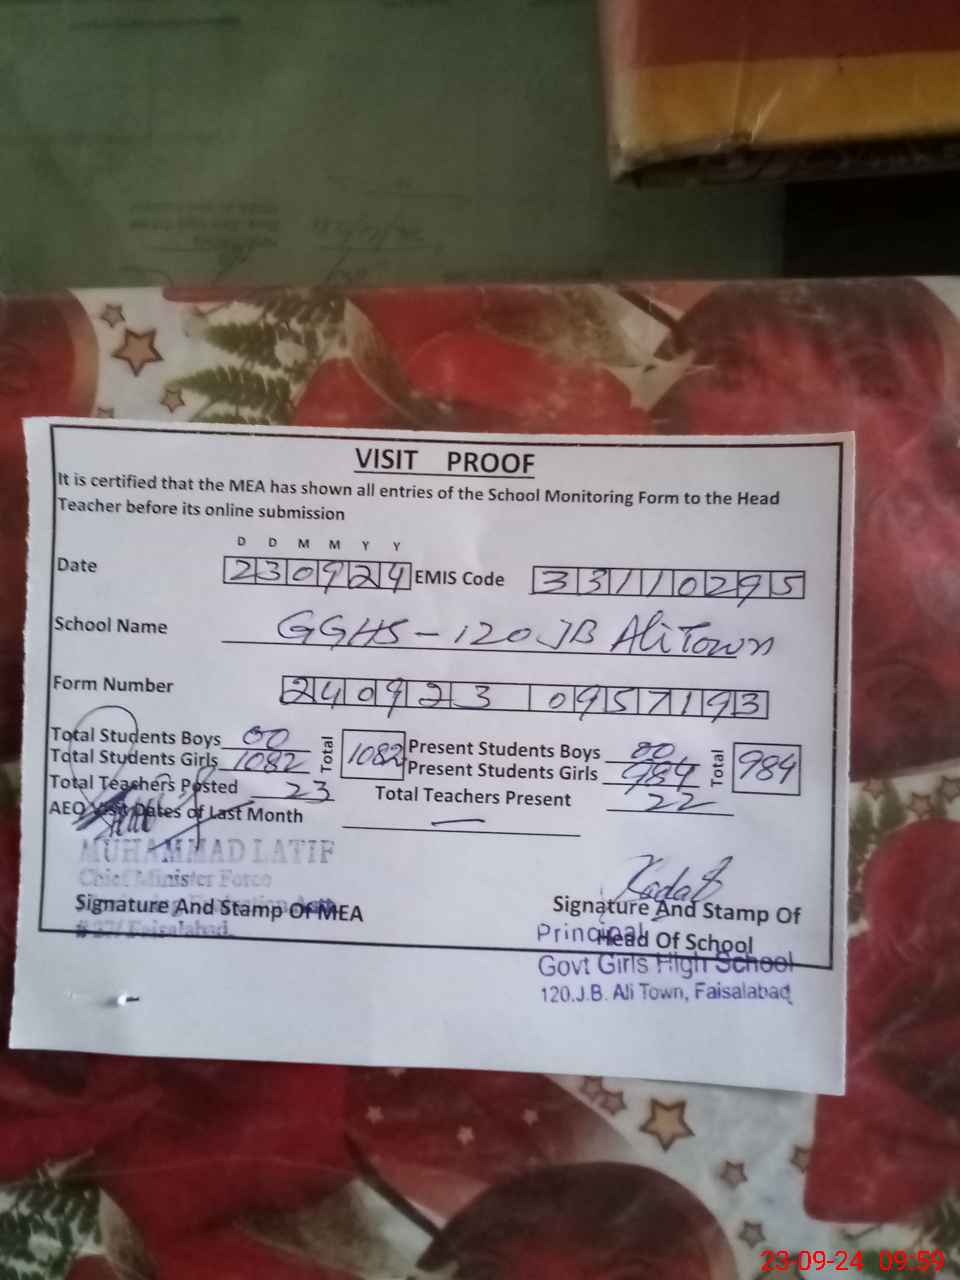 VISIT PROOF
It is certified that the MEA has shown all entries of the School Monitoring Form to the Head
Teacher before its online submission
D D M M Y Y
Date 230924 EMIS Code 33110295
School Name GGHS - 120 JB Ali Town
Form Number 240923 0957193
Total Students Boys 00 Total 1082 Present Students Boys 00 Total 984
Total Students Girls 1082 Present Students Girls 984
Total Teachers Posted 23 Total Teachers Present 22
AEO Visit Dates of Last Month —
MUHAMMAD LATIF
Chief Minister Force
Signature And Stamp Of MEA Signature And Stamp Of
Faisalabad.
Principal Head Of School
Govt Girls High School
120.J.B. Ali Town, Faisalabad
23-09-24 09:59